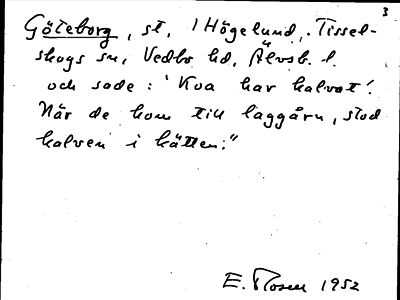 3
Göteborg, st. i Högelund, Tissel-
skogs sn, Vedbo hd, Älvsb. l.
och sade: 'Koa har kalvat'!
När de kom till laggårn, stod
kalven i kätten."
E. Rosen 1952